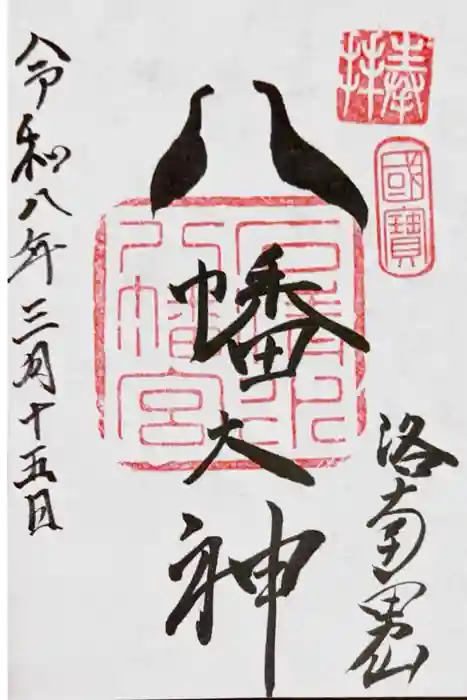 奉拝
國寶
洛南男山
八幡大神
石清水八幡宮
令和八年三月十五日